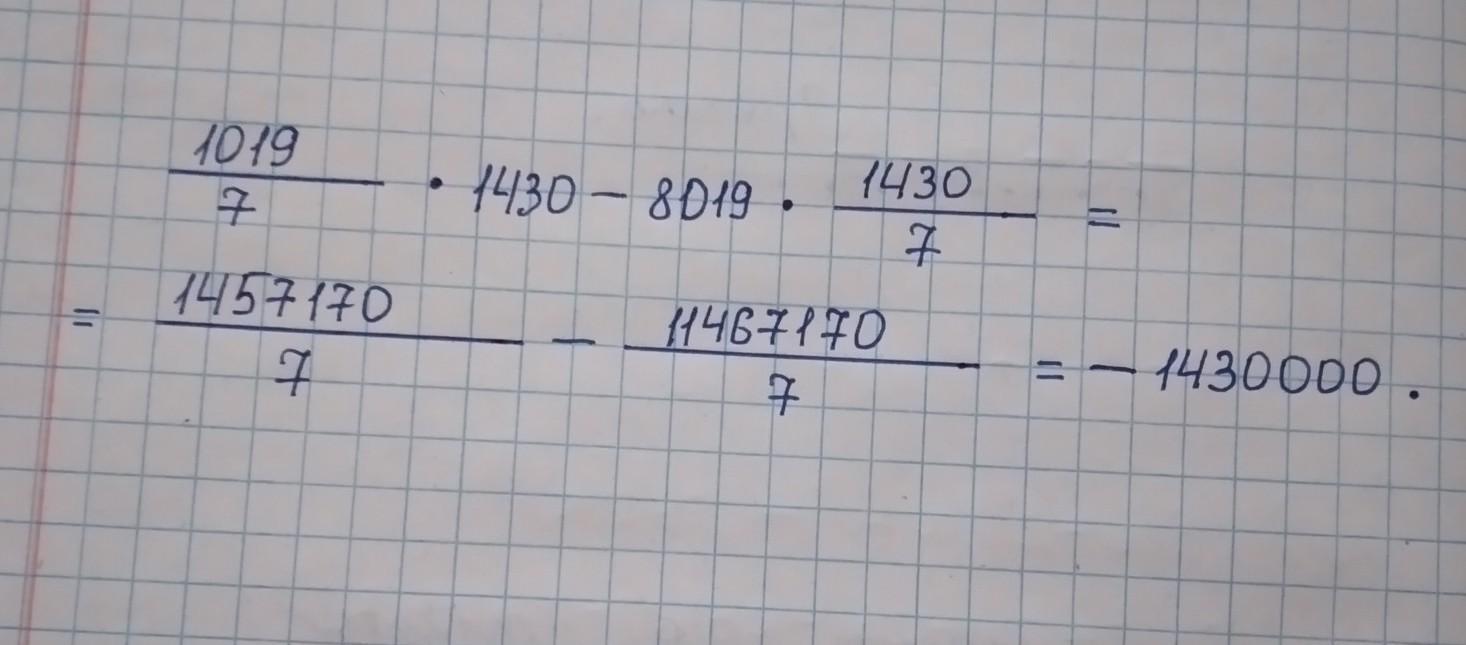 1019/7 · 1430 − 8019 · 1430/7 =
= 1457170/7 − 11467170/7 = − 1430000.